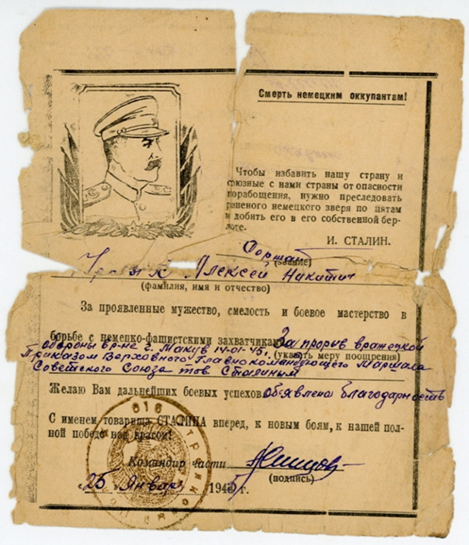 Смерть немецким оккупантам!
Чтобы избавить нашу страну и
союзные с нами страны от опасности
порабощения, нужно преследовать
раненого немецкого зверя по пятам
и добить его в его собственной бер-
логе.
И. СТАЛИН.
(звание)
Алексей Никитич
(фамилия, имя и отчество)
За проявленные мужество, смелость и боевое мастерство в
борьбе с немецко-фашистскими захватчиками За прорыв вражеской
обороны в р-не г. 14-01-45г. (указать меру поощрения)
Приказом Верховного Главнокомандующего Маршала
Советского Союза тов Сталиным
Желаю Вам дальнейших боевых успехов объявлена благодарность
С именем товарища СТАЛИНА вперед, к новым боям, к нашей пол-
ной победе над врагом!
Командир части
(подпись)
25 Январ 1945 г.